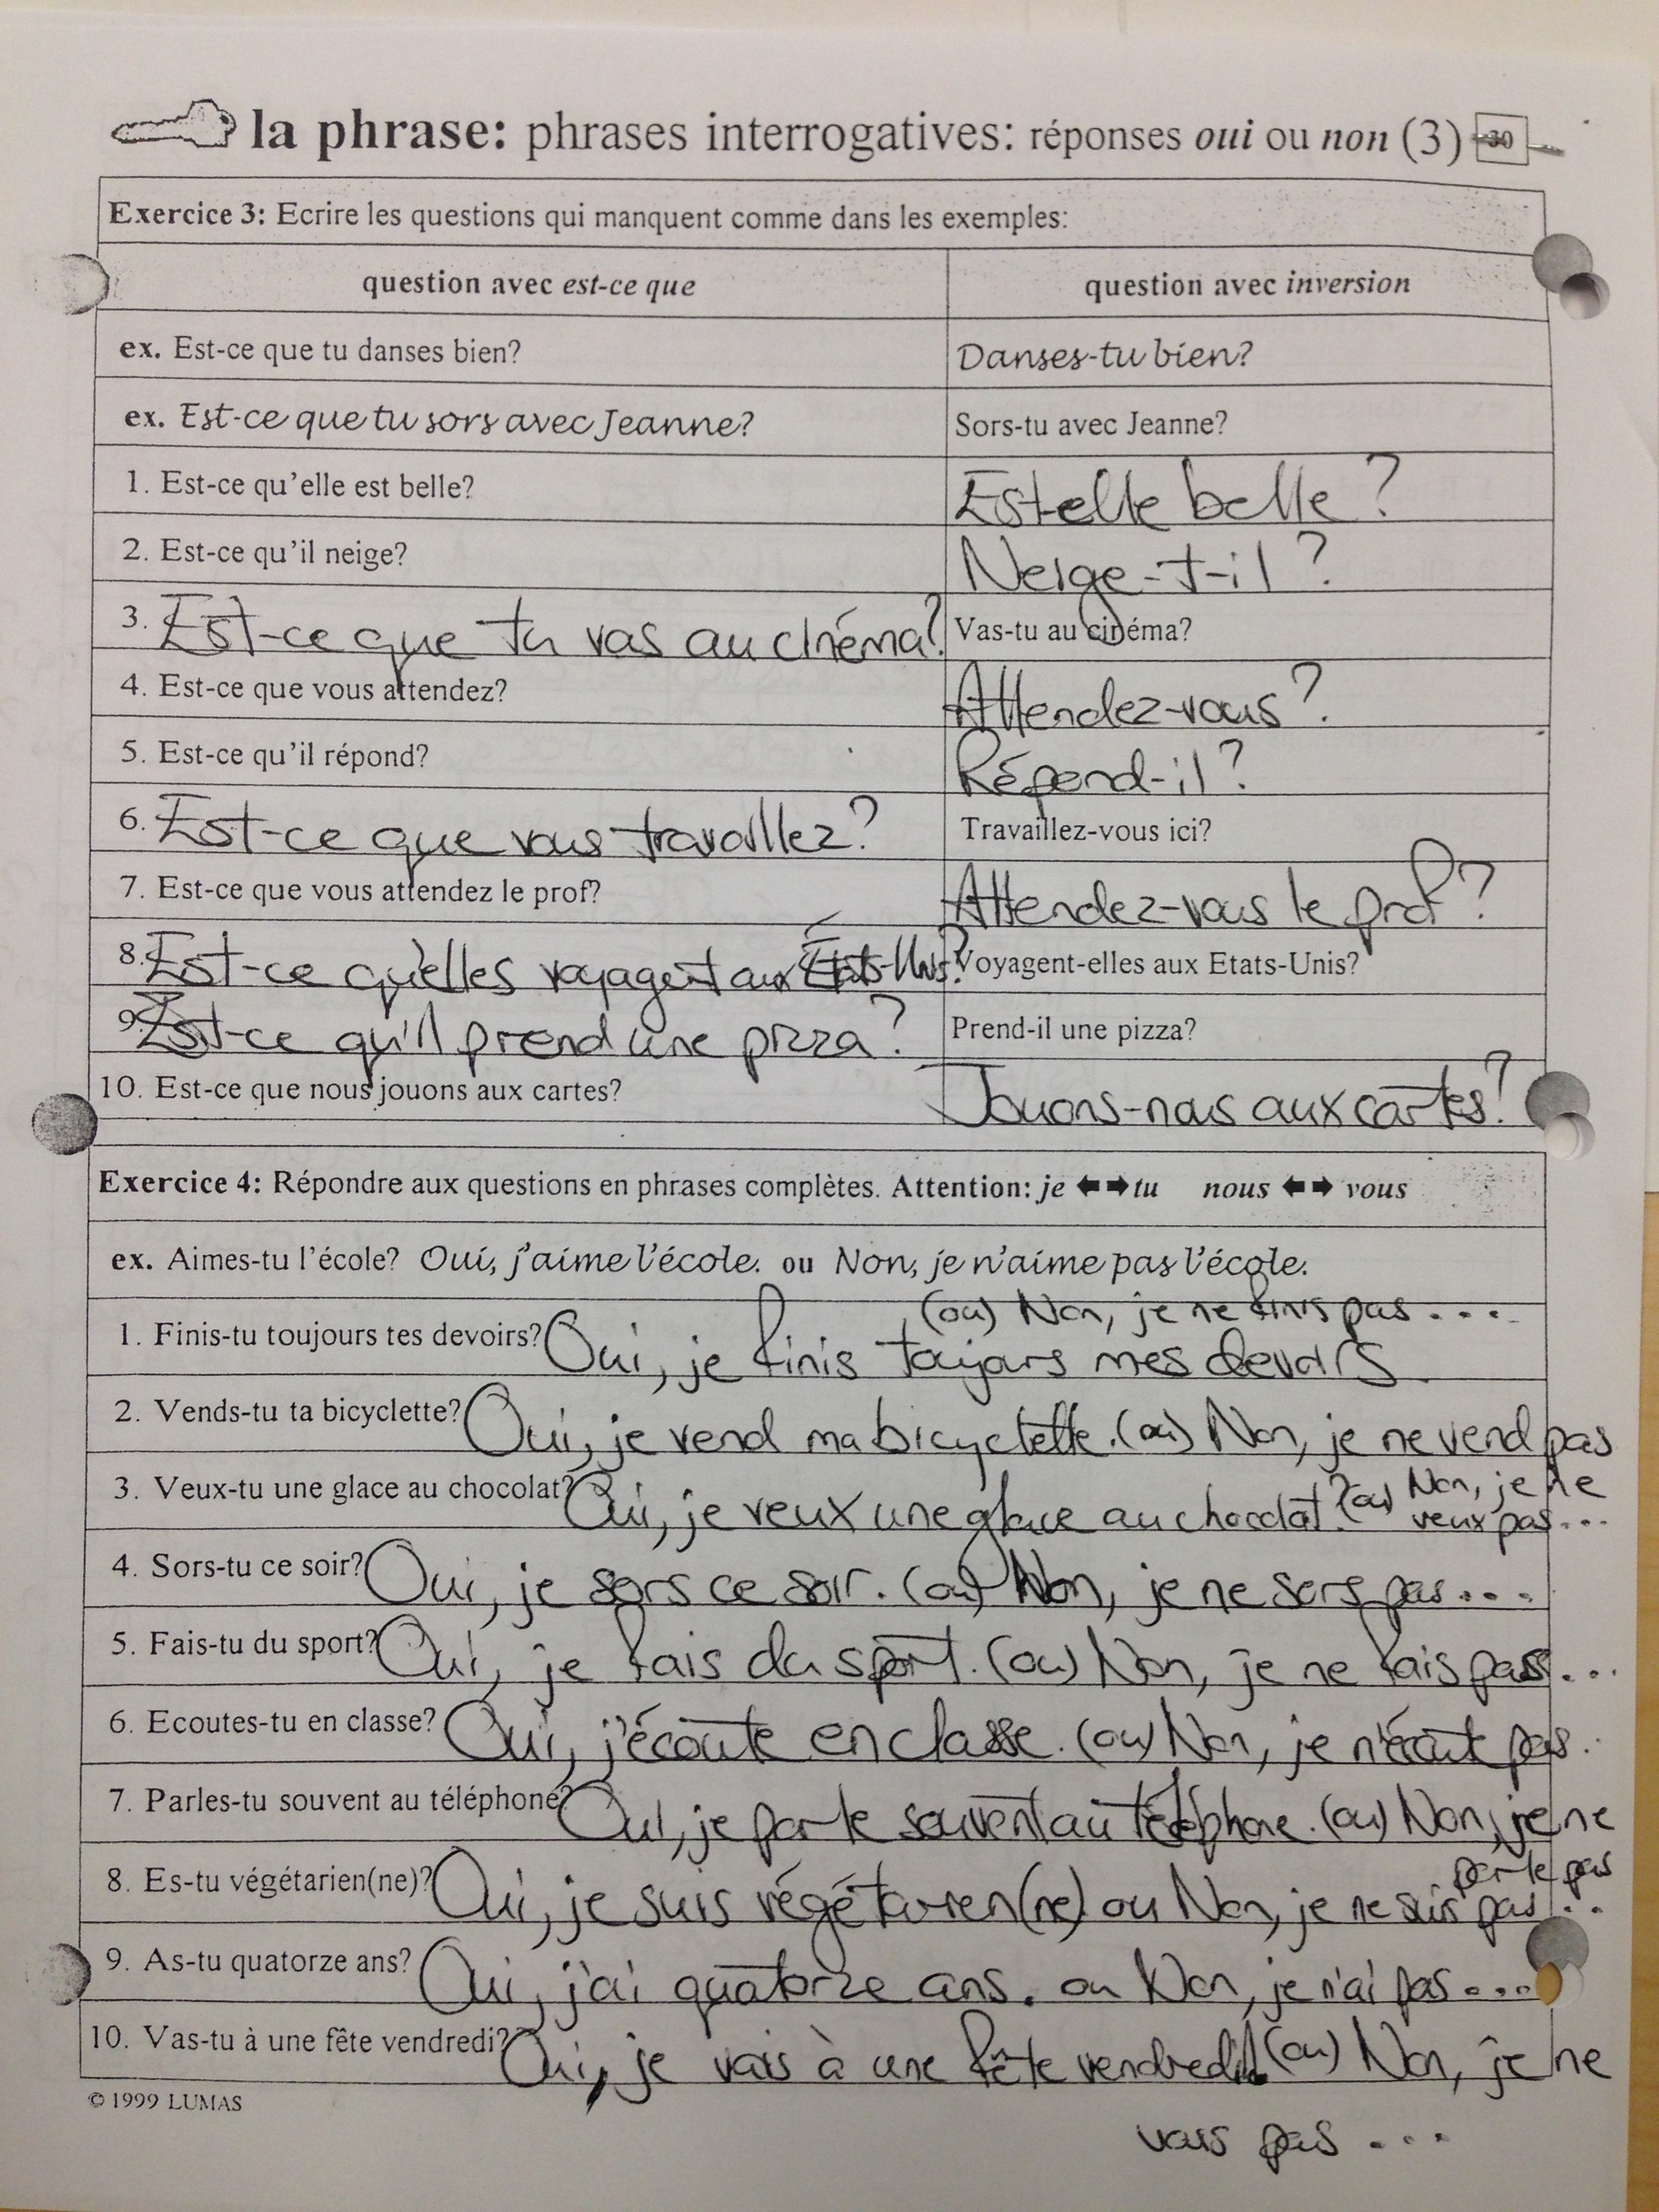 la phrase: phrases interrogatives: réponses oui ou non (3) 30
Exercice 3: Ecrire les questions qui manquent comme dans les exemples:
question avec est-ce que question avec inversion
ex. Est-ce que tu danses bien? Danses-tu bien?
ex. Est-ce que tu sors avec Jeanne? Sors-tu avec Jeanne?
1. Est-ce qu'elle est belle? Est-elle belle?
2. Est-ce qu'il neige? Neige-t-il?
3. Est-ce que tu vas au cinéma? Vas-tu au cinéma?
4. Est-ce que vous attendez? Attendez-vous?
5. Est-ce qu'il répond? Répond-il?
6. Est-ce que vous travaillez? Travaillez-vous ici?
7. Est-ce que vous attendez le prof? Attendez-vous le prof?
8. Est-ce qu'elles voyagent aux États-Unis? Voyagent-elles aux Etats-Unis?
9. Est-ce qu'il prend une pizza? Prend-il une pizza?
10. Est-ce que nous jouons aux cartes? Jouons-nous aux cartes?
Exercice 4: Répondre aux questions en phrases complètes. Attention: je ⬅➡ tu nous ⬅➡ vous
ex. Aimes-tu l'école? Oui, j'aime l'école. ou Non, je n'aime pas l'école.
(ou) Non, je ne finis pas ....
1. Finis-tu toujours tes devoirs? Oui, je finis toujours mes devoirs.
2. Vends-tu ta bicyclette? Oui, je vend ma bicyclette. (ou) Non, je ne vend pas
3. Veux-tu une glace au chocolat? Oui, je veux une glace au chocolat? (ou) Non, je ne
veux pas ...
4. Sors-tu ce soir? Oui, je sors ce soir. (ou) Non, je ne sors pas ...
5. Fais-tu du sport? Oui, je fais du sport. (ou) Non, je ne fais pas ...
6. Ecoutes-tu en classe? Oui, j'écoute en classe. (ou) Non, je n'écoute pas ..
7. Parles-tu souvent au téléphone? Oui, je parle souvent au téléphone. (ou) Non, je ne
parle pas
8. Es-tu végétarien(ne)? Oui, je suis végétarien(ne) ou Non, je ne suis pas ...
9. As-tu quatorze ans? Oui, j'ai quatorze ans. ou Non, je n'ai pas ....
10. Vas-tu à une fête vendredi? Oui, je vais à une fête vendredi. (ou) Non, je ne
vais pas ...
© 1999 LUMAS